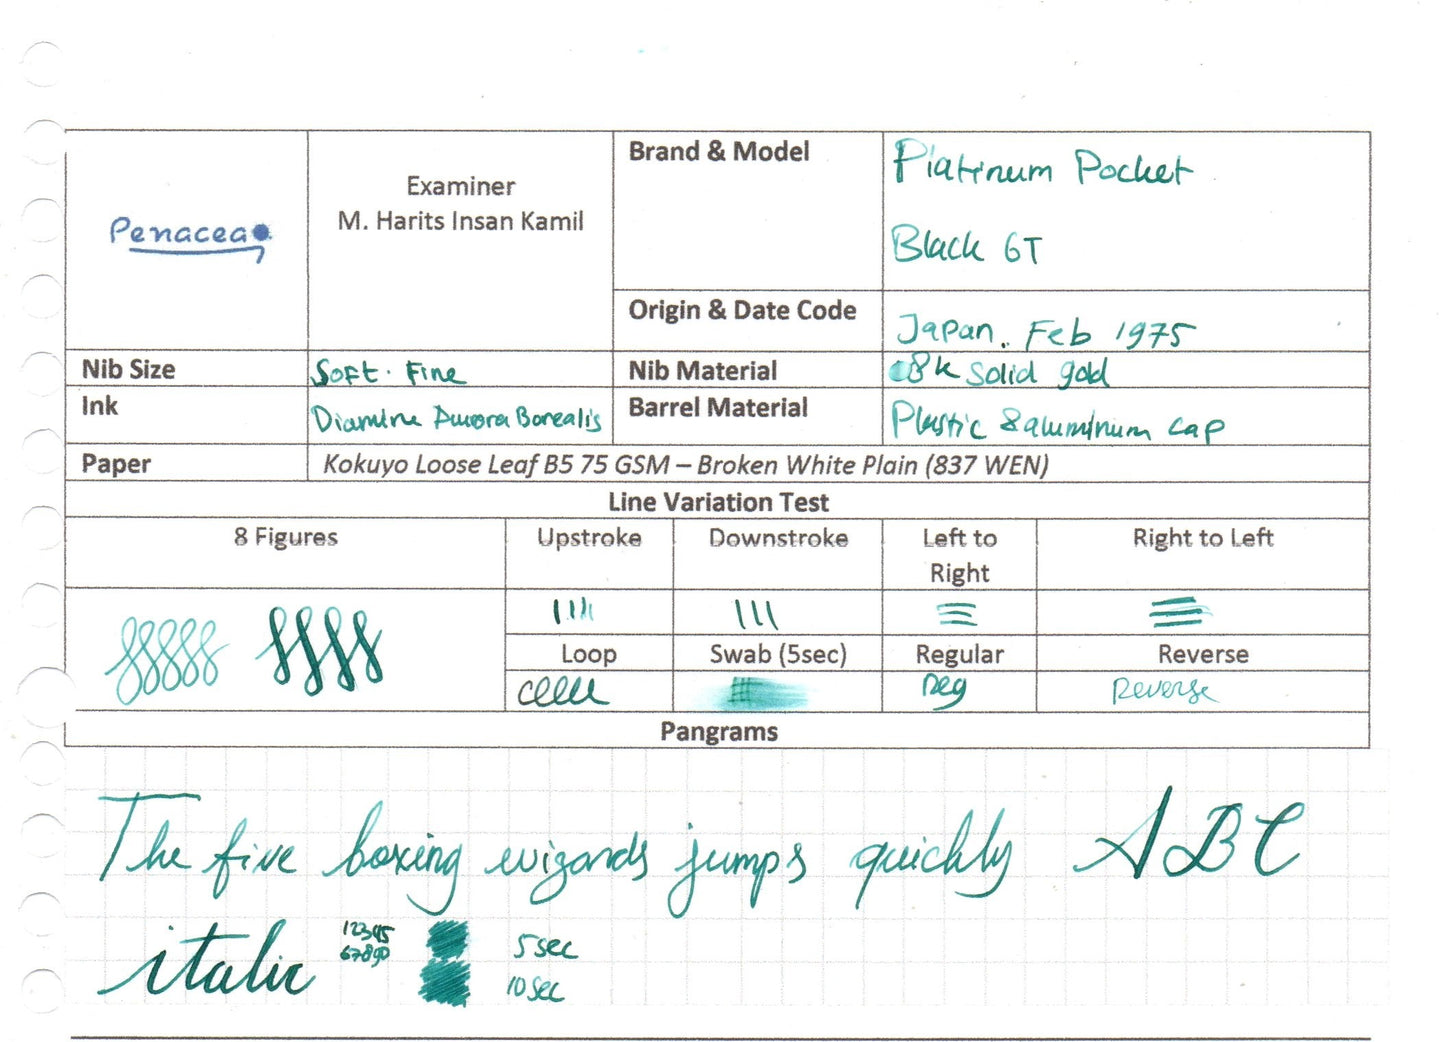 Penacea
Examiner
M. Harits Insan Kamil
Brand & Model
Platinum Pocket
Black GT
Origin & Date Code
Japan. Feb 1975
Nib Size
Soft. Fine
Nib Material
18k solid gold
Ink
Diamine Aurora Borealis
Barrel Material
Plastic & aluminum cap
Paper
Kokuyo Loose Leaf B5 75 GSM – Broken White Plain (837 WEN)
Line Variation Test
8 Figures
Upstroke
Downstroke
Left to
Right
Right to Left
Loop
Swab (5sec)
Regular
Reverse
Reg
Reverse
Pangrams
The five boxing wizards jumps quickly ABC
italic
12345
67890
5 sec
10 sec